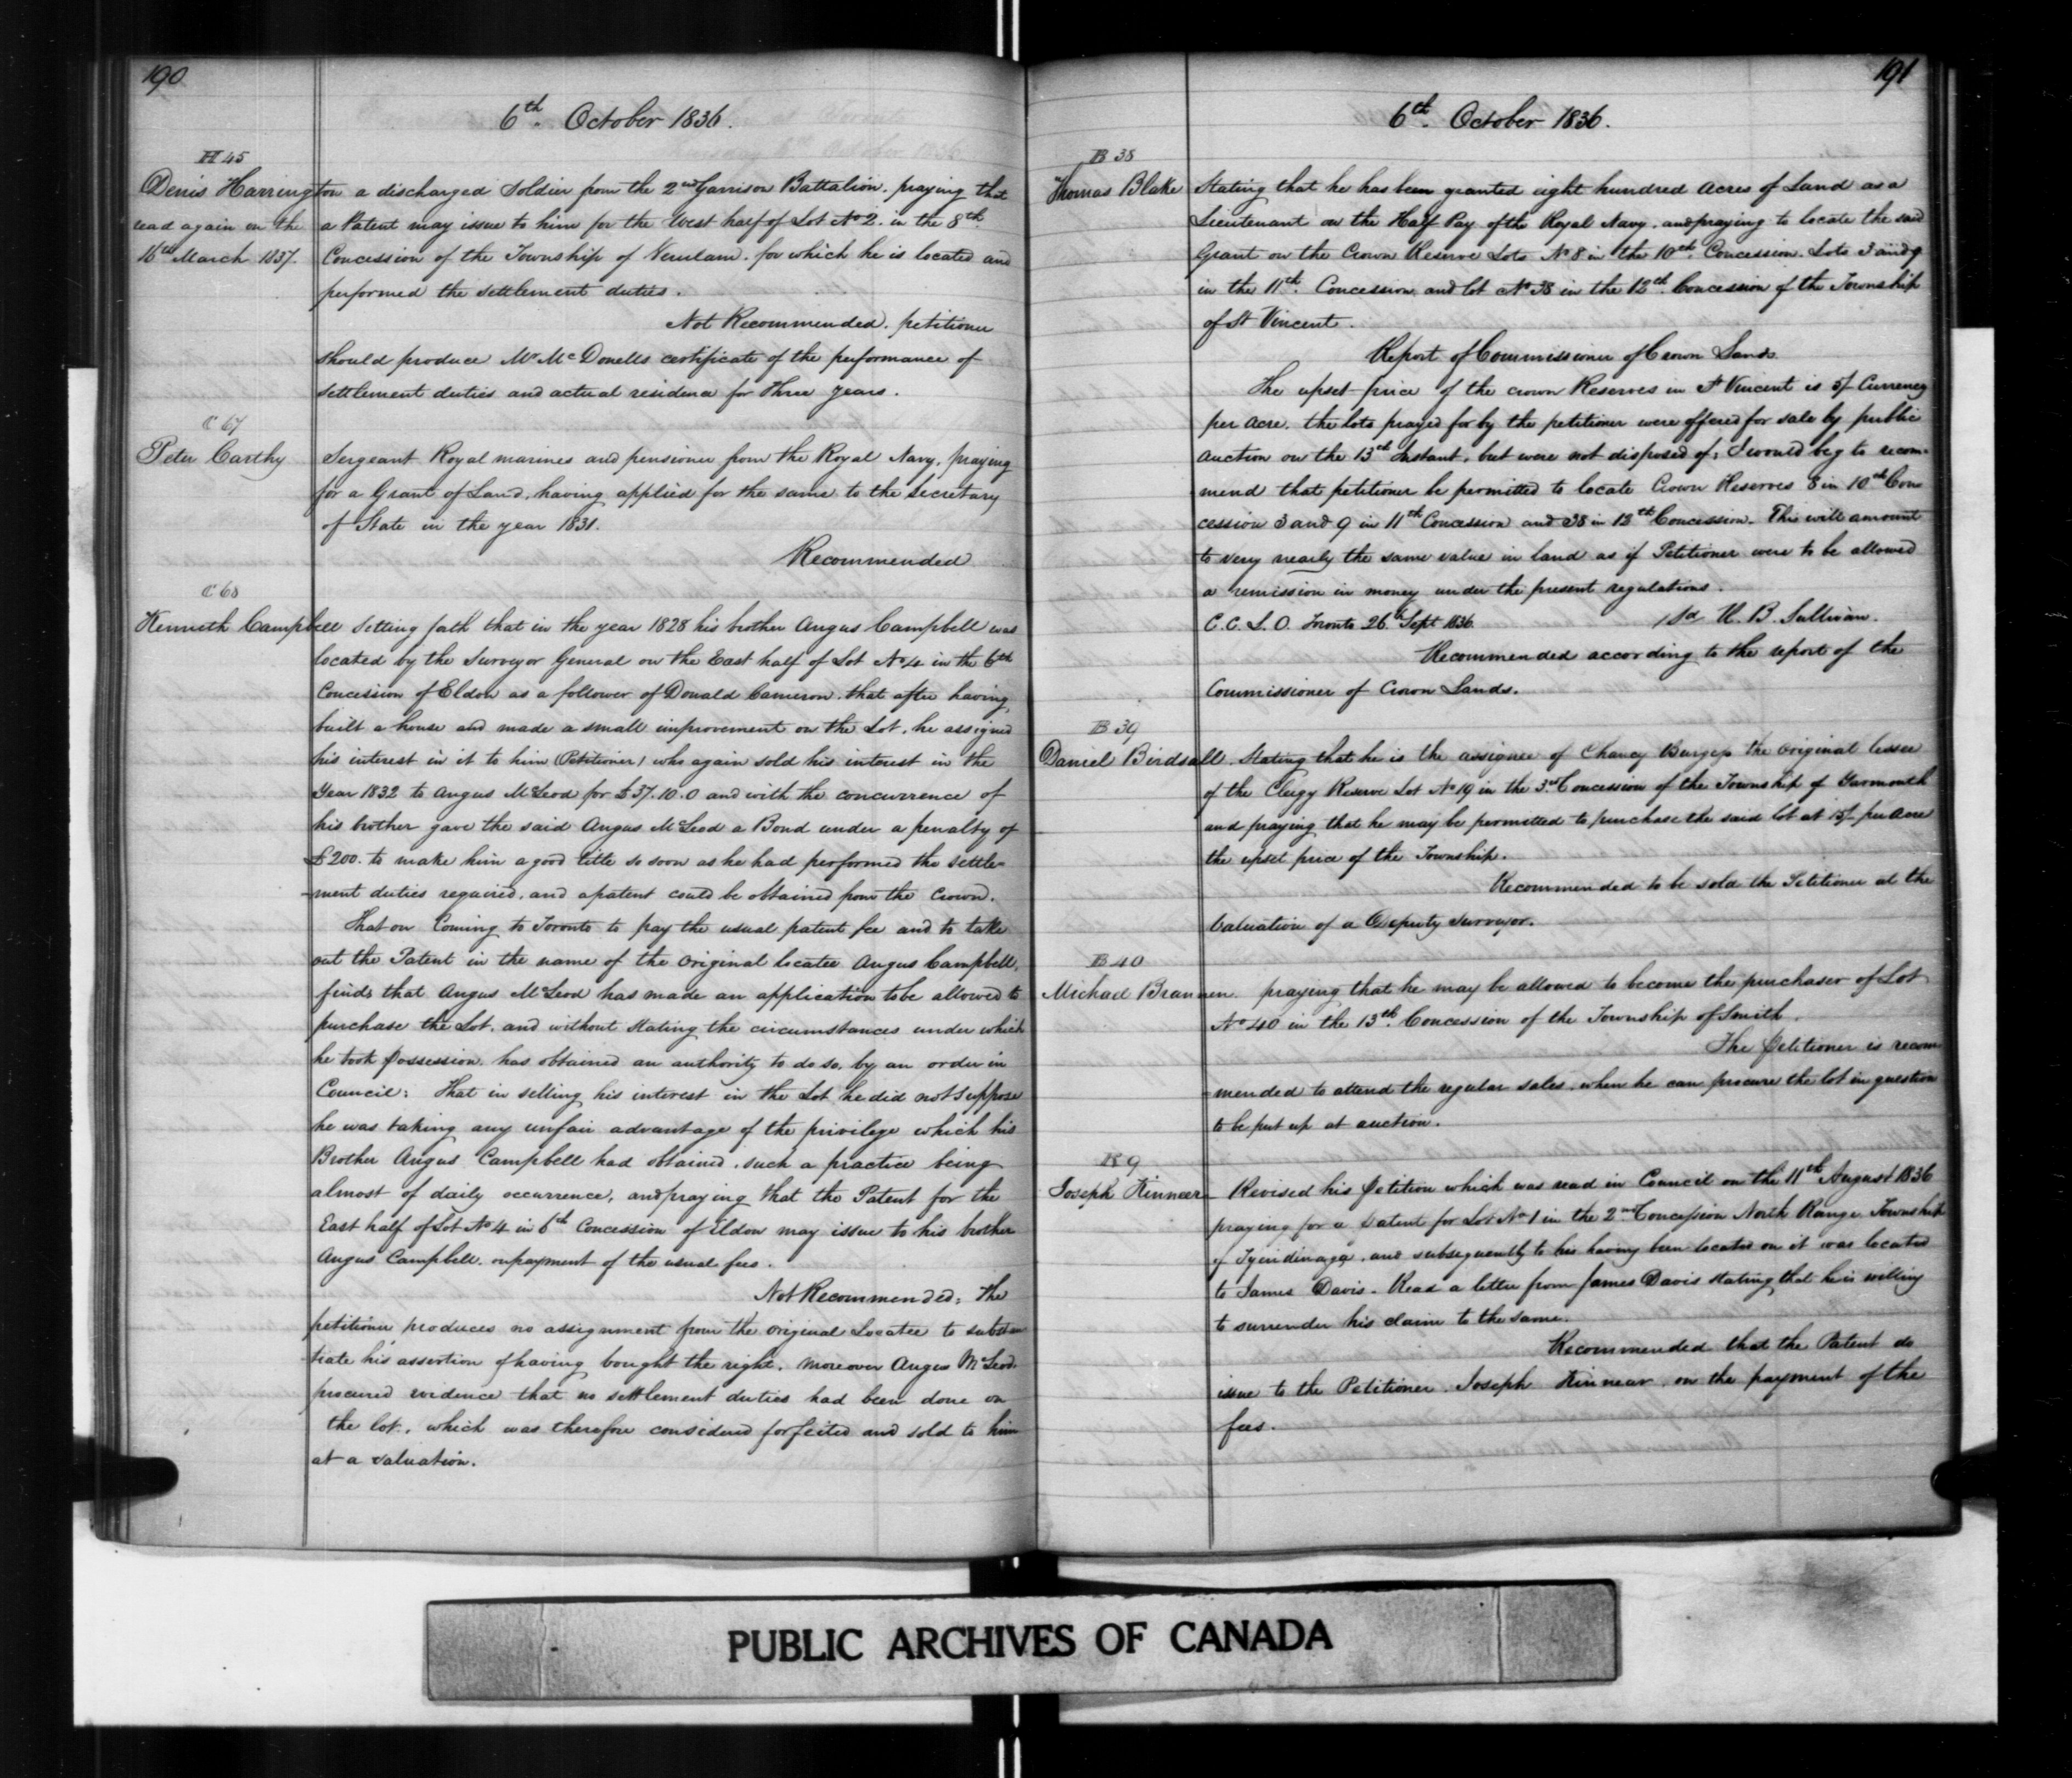 190
6th. October 1836.
H 45
Denis Harrington a discharged Soldier from the 2nd Garrison Battalion. praying that
read again on the
16th March 1837.
a Patent may issue to him for the West half of Lot No 2. in the 8th
Concession of the Township of Verulam. for which he is located and
performed the settlement duties.
Not Recommended. petitioner
should produce Mr McDonells certificate of the performance of
settlement duties and actual residence for three years.
C 67
Peter Carthy Sergeant Royal marines and pensioner from the Royal Navy, praying
for a Grant of Land, having applied for the same to the Secretary
of State in the year 1831.
Recommended
C 68
Kenneth Campbell Setting forth that in the year 1828 his brother Angus Campbell was
located by the Surveyor General on the East half of Lot No 4 in the 6th
Concession of Eldon as a follower of Donald Cameron. that after having
built a house and made a small improvement on the Lot, he assigned
his interest in it to him (Petitioner) who again sold his interest in the
Year 1832 to Angus McLeod for £37.10.0 and with the concurrence of
his brother gave the said Angus McLeod a Bond under a penalty of
£200. to make him a good title so soon as he had performed the settle=
-ment duties required, and a patent could be obtained from the Crown.
That on Coming to Toronto to pay the usual patent fee and to take
out the Patent in the name of the original locatee Angus Campbell,
finds that Angus McLeod has made an application to be allowed to
purchase the Lot. and without stating the circumstances under which
he took possession. has obtained an authority to do so, by an order in
Council: That in selling his interest in the Lot he did not suppose
he was taking any unfair advantage of the privilege which his
Brother Angus Campbell had obtained. such a practice being
almost of daily occurrence, and praying that the Patent for the
East half of Lot No 4 in 6th Concession of Eldon may issue to his brother
Angus Campbell. on payment of the usual fees.
Not Recommended; The
petitioner produces no assignment from the original Locatee to substan
-tiate his assertion of having bought the right. moreover Angus McLeod
procured evidence that no settlement duties had been done on
the lot, which was therefore considered forfeited and sold to him
at a valuation.
191
6th. October 1836.
B 38
Thomas Blake Stating that he has been granted eight hundred Acres of Land as a
Lieutenant on the Half Pay of the Royal Navy, and praying to locate the said
Grant on the Crown Reserve Lots No 8 in the 10th Concession. Lots 3 and 9
in the 11th. Concession and lot No 38 in the 12th Concession of the Township
of St Vincent.
Report of Commissioner of Crown Lands
The upset price of the crown Reserves in St Vincent is 5/ Currency
per Acre. the lots prayed for by the petitioner were offered for sale by public
Auction on the 13th Instant, but were not disposed of; I would beg to recom-
mend that petitioner be permitted to locate Crown Reserves 8 in 10th Con
cession 3 and 9 in 11th Concession and 38 in 12th Concession. This will amount
to very nearly the same value in land as if Petitioner were to be allowed
a remission in money under the present regulations.
C. C. L. O. Toronto 26th Sept 1836. Sd R. B. Sullivan.
Recommended according to the report of the
Commissioner of Crown Lands.
B 39
Daniel Birdsall. Stating that he is the assignee of Chancy Burgess the original lessee
of the Clergy Reserve Lot No 19 in the 3rd Concession of the Township of Yarmouth
and praying that he may be permitted to purchase the said lot at 15/ per Acre
the upset price of the Township.
Recommended to be sold the Petitioner at the
Valuation of a Deputy Surveyor.
B 40
Michael Brannen. praying that he may be allowed to become the purchaser of Lot
No 40 in the 13th. Concession of the Township of Smith.
The Petitioner is recom
-mended to attend the regular sales, when he can procure the lot in question
to be put up at auction.
K 9
Joseph Kinnear Revised his Petition which was read in Council on the 11th August 1836
praying for a Patent for Lot No 1 in the 2nd Concession North Range Township
of Tyendinaga, and subsequently to his having been located on it was located
to James Davis. Read a letter from James Davis stating that he is willing
to surrender his claim to the same.
Recommended that the Patent do
issue to the Petitioner Joseph Kinnear, on the payment of the
fees.
PUBLIC ARCHIVES OF CANADA